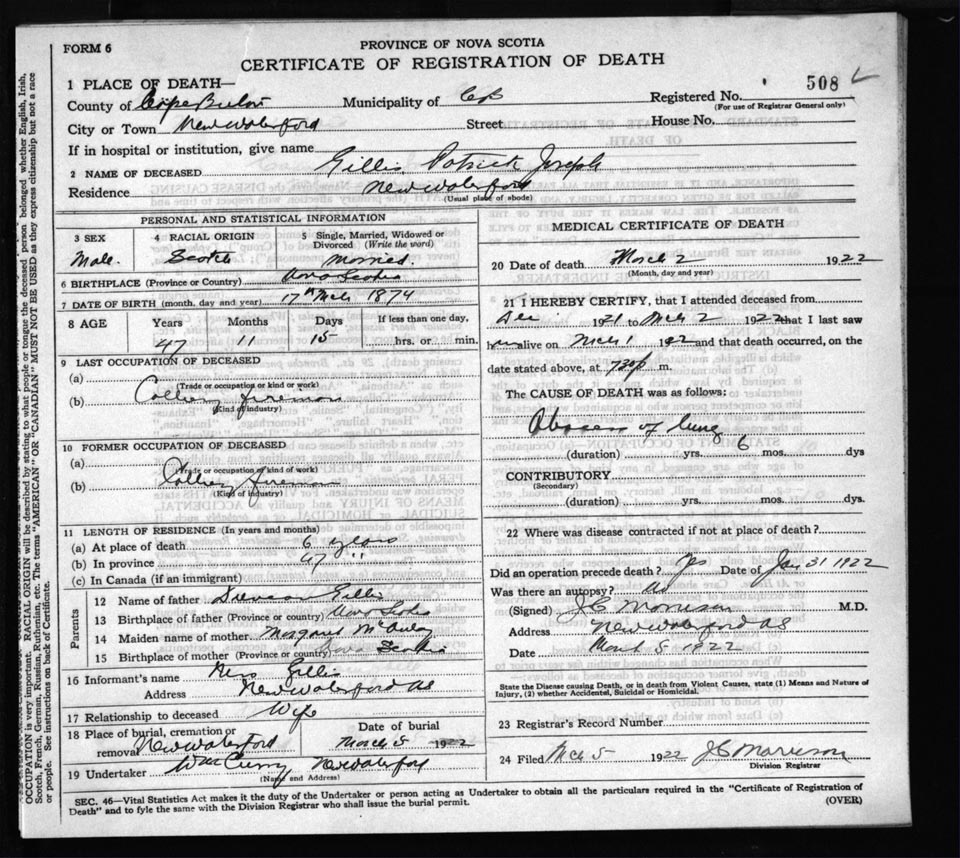 FORM 6
PROVINCE OF NOVA SCOTIA
CERTIFICATE OF REGISTRATION OF DEATH
508
1 PLACE OF DEATH—
County of Cape Breton Municipality of CB Registered No.
(For use of Registrar General only)
City or Town New Waterford Street House No.
If in hospital or institution, give name
2 NAME OF DECEASED Gillis Patrick Joseph
Residence New Waterford
(Usual place of abode)
PERSONAL AND STATISTICAL INFORMATION
3 SEX 4 RACIAL ORIGIN 5 Single, Married, Widowed or Divorced (Write the word)
Male. Scotch Married.
6 BIRTHPLACE (Province or Country) Nova Scotia
7 DATE OF BIRTH (month, day and year) 17th Mch 1874
8 AGE Years Months Days If less than one day,
47 11 15 hrs. or min.
9 LAST OCCUPATION OF DECEASED
(a)
(Trade or occupation or kind or work)
(b) Colliery fireman
(Kind of industry)
10 FORMER OCCUPATION OF DECEASED
(a)
(Trade or occupation or kind of work)
(b) Colliery fireman
(Kind of industry)
11 LENGTH OF RESIDENCE (In years and months)
(a) At place of death 6 years
(b) In province 47 "
(c) In Canada (if an immigrant)
Parents
12 Name of father Gillis
13 Birthplace of father (Province or country) Nova Scotia
14 Maiden name of mother Margaret
15 Birthplace of mother (Province or country) Nova Scotia
16 Informant's name Mrs Gillis
Address New Waterford NS
17 Relationship to deceased Wife
18 Place of burial, cremation or removal New Waterford
Date of burial March 5 1922
19 Undertaker New Waterford
(Name and Address)
MEDICAL CERTIFICATE OF DEATH
20 Date of death March 2 1922
(Month, day and year)
21 I HEREBY CERTIFY, that I attended deceased from
Dec 1921 to Mch 2 1922 that I last saw
him alive on Mch 1 192 and that death occurred, on the
date stated above, at m.
The CAUSE OF DEATH was as follows:
Abscess of lung
(duration) yrs. 6 mos. dys
CONTRIBUTORY
(Secondary)
(duration) yrs. mos. dys.
22 Where was disease contracted if not at place of death?
Did an operation precede death? Yes Date of Jany 31 1922
Was there an autopsy? No
(Signed) J C Morrison M.D.
Address New Waterford NS
Date March 5 1922
State the Disease causing Death, or in death from Violent Causes, state (1) Means and Nature of
Injury, (2) whether Accidental, Suicidal or Homicidal.
23 Registrar's Record Number
24 Filed Mch 5 1922 J C Morrison
Division Registrar
SEC. 46—Vital Statistics Act makes it duty of the Undertaker or person acting as Undertaker to obtain all the particulars required in the "Certificate of Registration of
Death" and to fyle the same with the Division Registrar who shall issue the burial permit. (OVER)
OCCUPATION is very important. RACIAL ORIGIN will be described by stating to what people or tongue the deceased person belonged whether English, Irish,
Scotch, French, German, Russian, Ruthenian, etc. The terms "AMERICAN" OR "CANADIAN" MUST NOT BE USED as they express citizenship but not a race
or people. See instructions on back of Certificate.